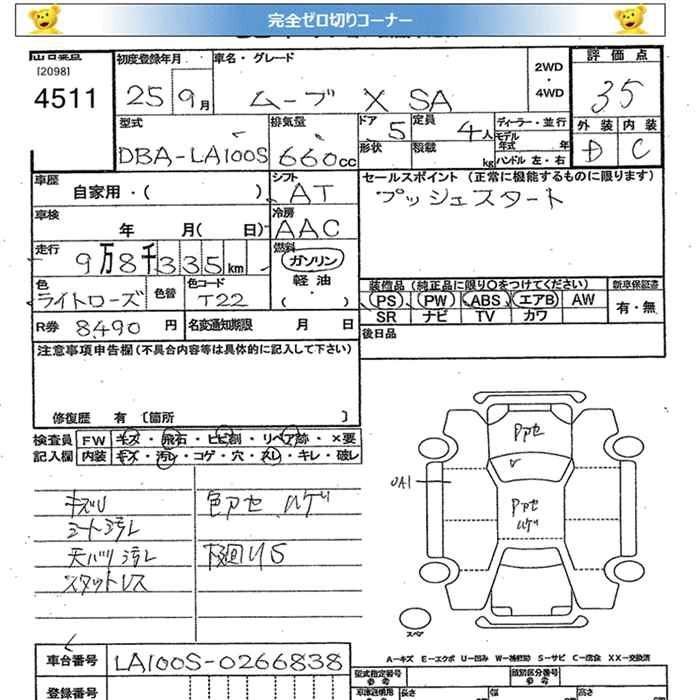 完全ゼロ切りコーナー
[2098]
4511
初度登録年月
25 9月
車名・グレード
ムーブ X SA
2WD
・
4WD
評価点
35
外装 内装
D C
型式
DBA-LA100S
排気量
660cc
ドア
5
形状
定員
4人
積載
kg
ディーラー・並行
モデル
年式 年
ハンドル 左・右
車歴
自家用・( )
シフト
AT
車検
年 月( 日)
冷房
AAC
走行
9万8千335km
燃料
ガソリン
軽油
( ・ )
色
ライトローズ
色替
色コード
T22
R券
8490円
名変通知期限 月 日
セールスポイント (正常に機能するものに限ります)
プッシュスタート
装備品 (純正品に限り〇をつけてください)
(PS) (PW) (ABS) (エアB) AW
SR ナビ TV カワ
新車保証書
有・無
後日品
注意事項申告欄 (不具合内容等は具体的に記入して下さい)
修復歴 有 [箇所 ]
検査員
記入欄
FW キズ・飛石・ヒビ割・リペア跡・×要
内装 キズ・汚レ・コゲ・穴・スレ・キレ・破レ
キズU
シート汚レ
天バリ汚レ
スタットレス
色アセ ハゲ
下廻りS
Pアセ
UA1
Pアセ
ハゲ
スペア
車台番号
LA100S-0266838
登録番号
A−キズ E−エクボ U−凹み W−補修跡 S−サビ C−腐食 XX−交換済
型式指定番号
参考
類別区分番号
参考
長さ
幅
高さ